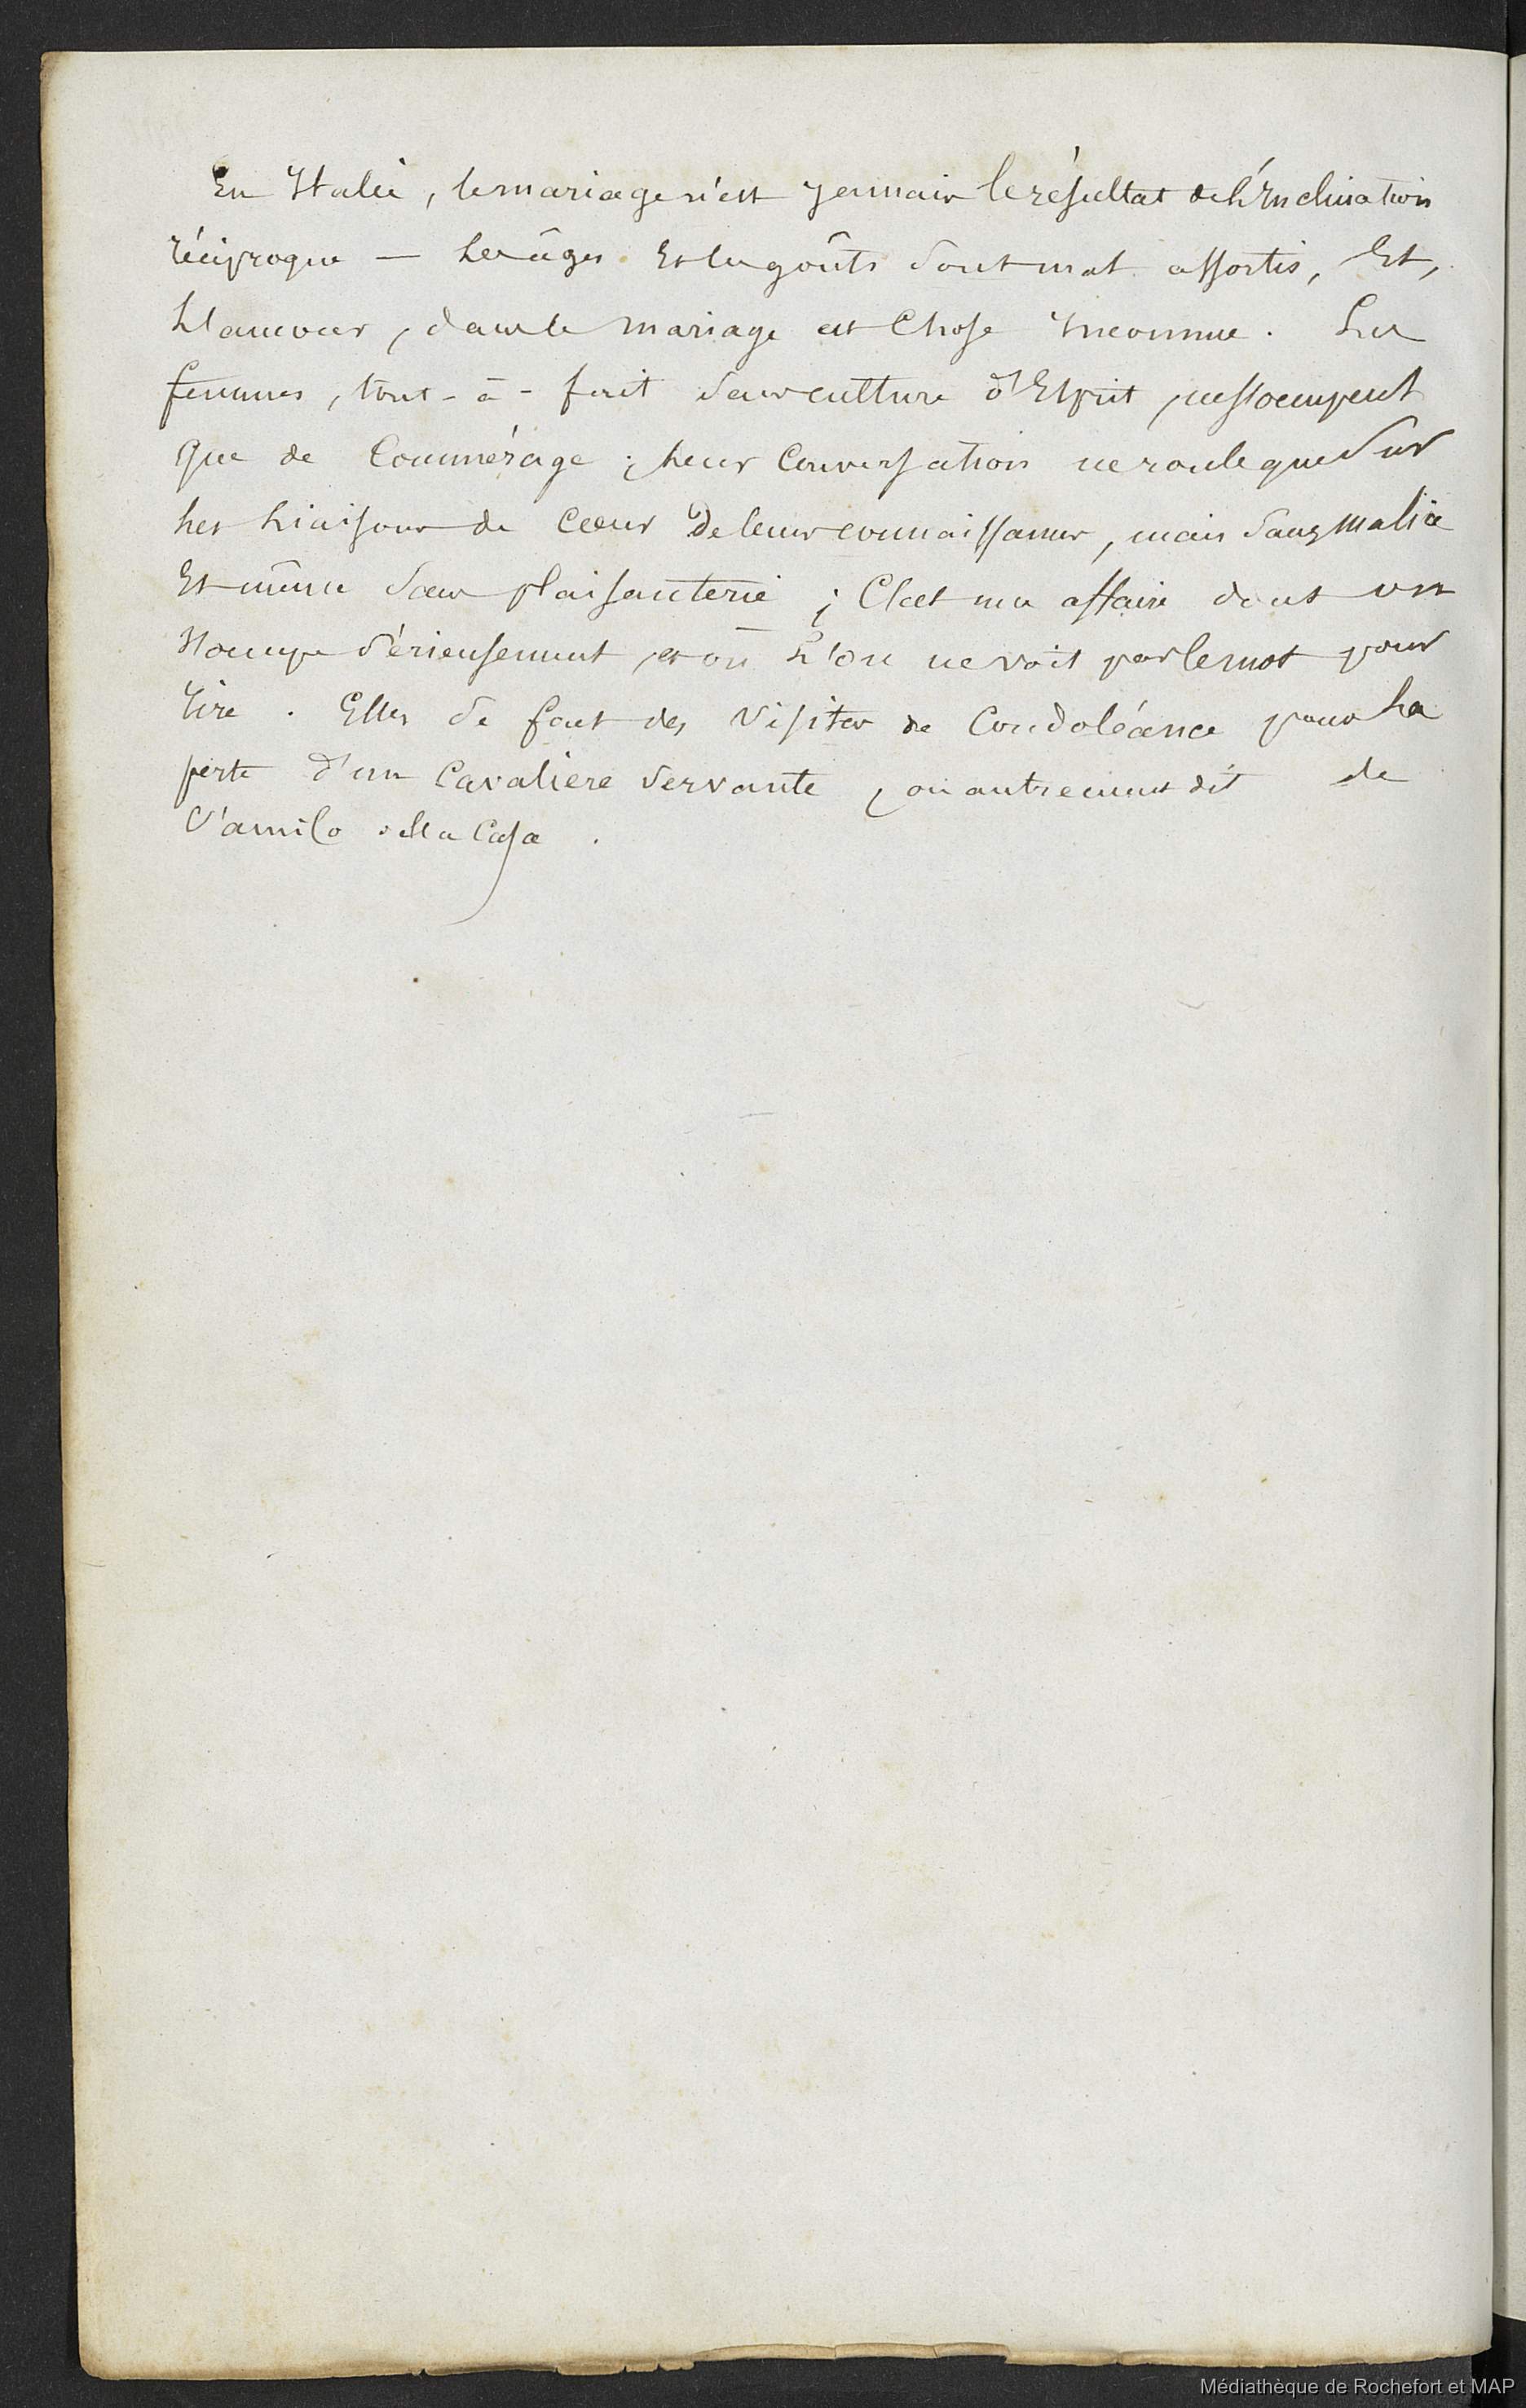 En Italie, le mariage n'est jamais le résultat de l'Inclination
réciproque — Les âges Et les goûts Sont mal assortis, Et,
L'amour, dans le mariage est Chose Inconnue. Les
femmes, tout-à-fait Sans culture d'Esprit, ne s'occupent
que de Commérage ; Leur Conversation ne roule que Sur
Les Liaisons de Cœur De leurs connaissances, mais Sans malice
Et même Sans plaisanterie ; C'est une affaire dont on
s'occupe Sérieusement, et où L'on ne voit pas le mot pour
rire. Elles Se font des Visites de Condoléance pour La
perte d'un Cavaliere Servante, ou autrement dit de
l'amico della Casa.
Médiathèque de Rochefort et MAP